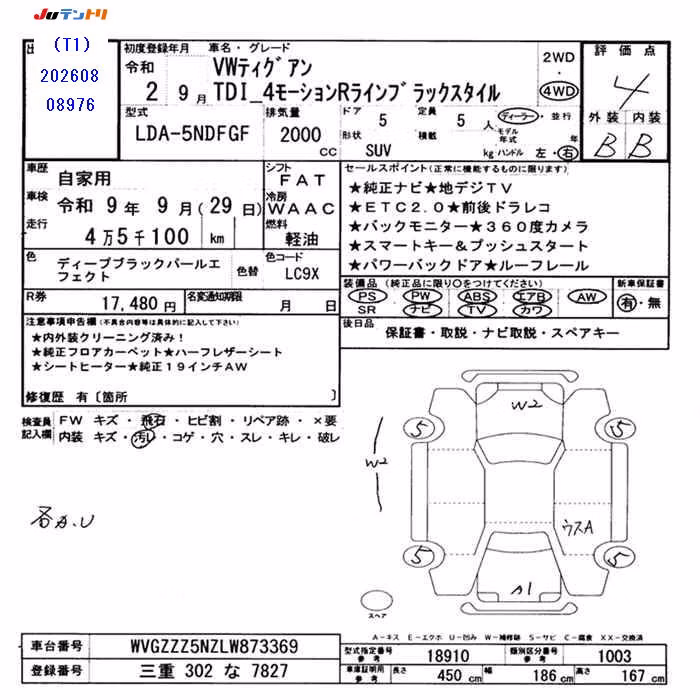 JUテントリ
(T1)
202608
08976
初度登録年月 車名・グレード
令和 2 9月
VWティグアン
TDI_4モーションRラインブラックスタイル
2WD
・
4WD
評価点
4
外装 内装
B B
型式
LDA-5NDFGF
排気量
2000 CC
ドア 5
定員 5 人
形状 SUV
積載 kg
ディーラー・並行
モデル年式 年
ハンドル 左・右
車歴 自家用
車検 令和 9年 9月(29日)
走行 4万5千100 km
シフト FAT
冷房 WAAC
燃料 軽油
色 ディープブラックパールエフェクト
色替
色コード LC9X
R券 17,480円
名変通知期限 月 日
セールスポイント(正常に機能するものに限ります)
★純正ナビ★地デジTV
★ETC2.0★前後ドラレコ
★バックモニター★360度カメラ
★スマートキー&プッシュスタート
★パワーバックドア★ルーフレール
装備品(純正品に限り○をつけてください)
PS・PW・ABS・エアB・AW
SR・ナビ・TV・カワ
新車保証書
有・無
後日品 保証書・取説・ナビ取説・スペアキー
注意事項申告欄(不具合内容等は具体的に記入して下さい)
★内外装クリーニング済み!
★純正フロアカーペット★ハーフレザーシート
★シートヒーター★純正19インチAW
修復歴 有〔箇所 〕
検査員記入欄
FW キズ・飛石・ヒビ割・リペア跡・×要
内装 キズ・汚レ・コゲ・穴・スレ・キレ・破レ
各A.U
W2
W2
5
5
5
5
ウスA
A1
スペア
A-キズ E-エクボ U-凹み W-補修跡 S-サビ C-腐食 XX-交換済
車台番号 WVGZZZ5NZLW873369
登録番号 三重 302 な 7827
型式指定番号 参考 18910
類別区分番号 参考 1003
車庫証明用 参考 長さ 450 cm 幅 186 cm 高さ 167 cm